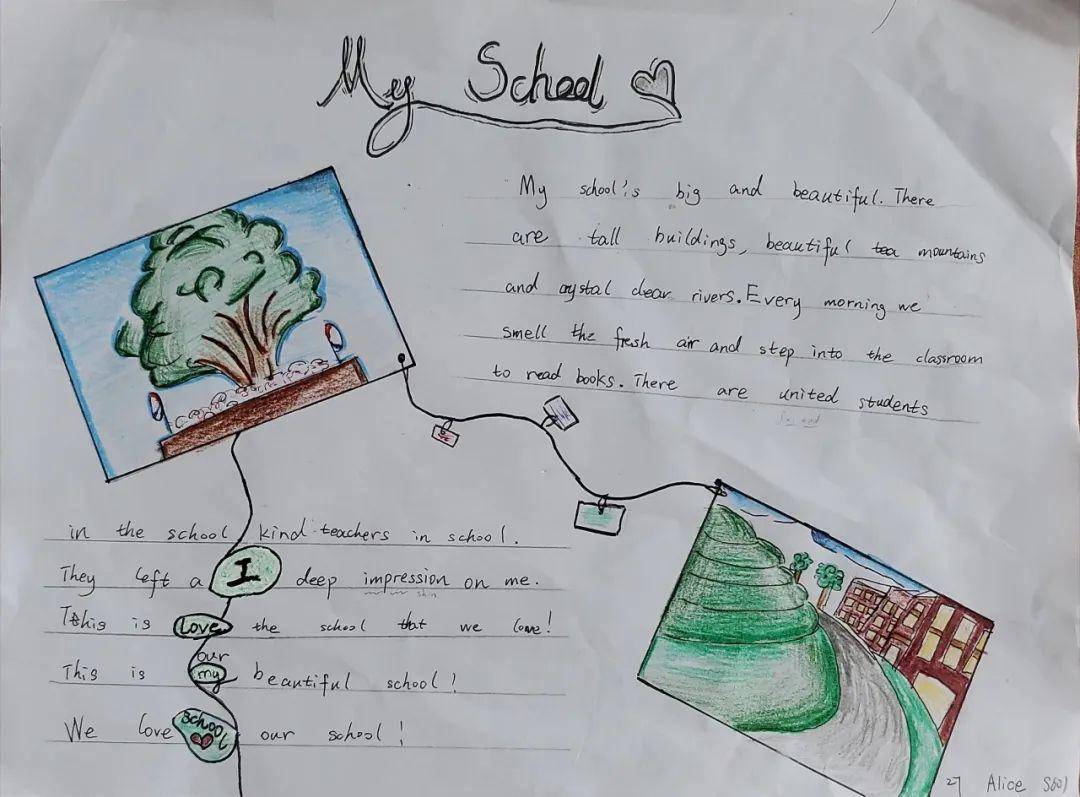 My School
My school's big and beautiful. There
are tall buildings, beautiful tea mountains
and crystal clear rivers. Every morning we
smell the fresh air and step into the classroom
to read books. There are united students
in the school kind teachers in school.
They left a deep impression on me.
This is the school that we love!
This is our beautiful school!
We love our school!
I
Love
my
school
27 Alice S601